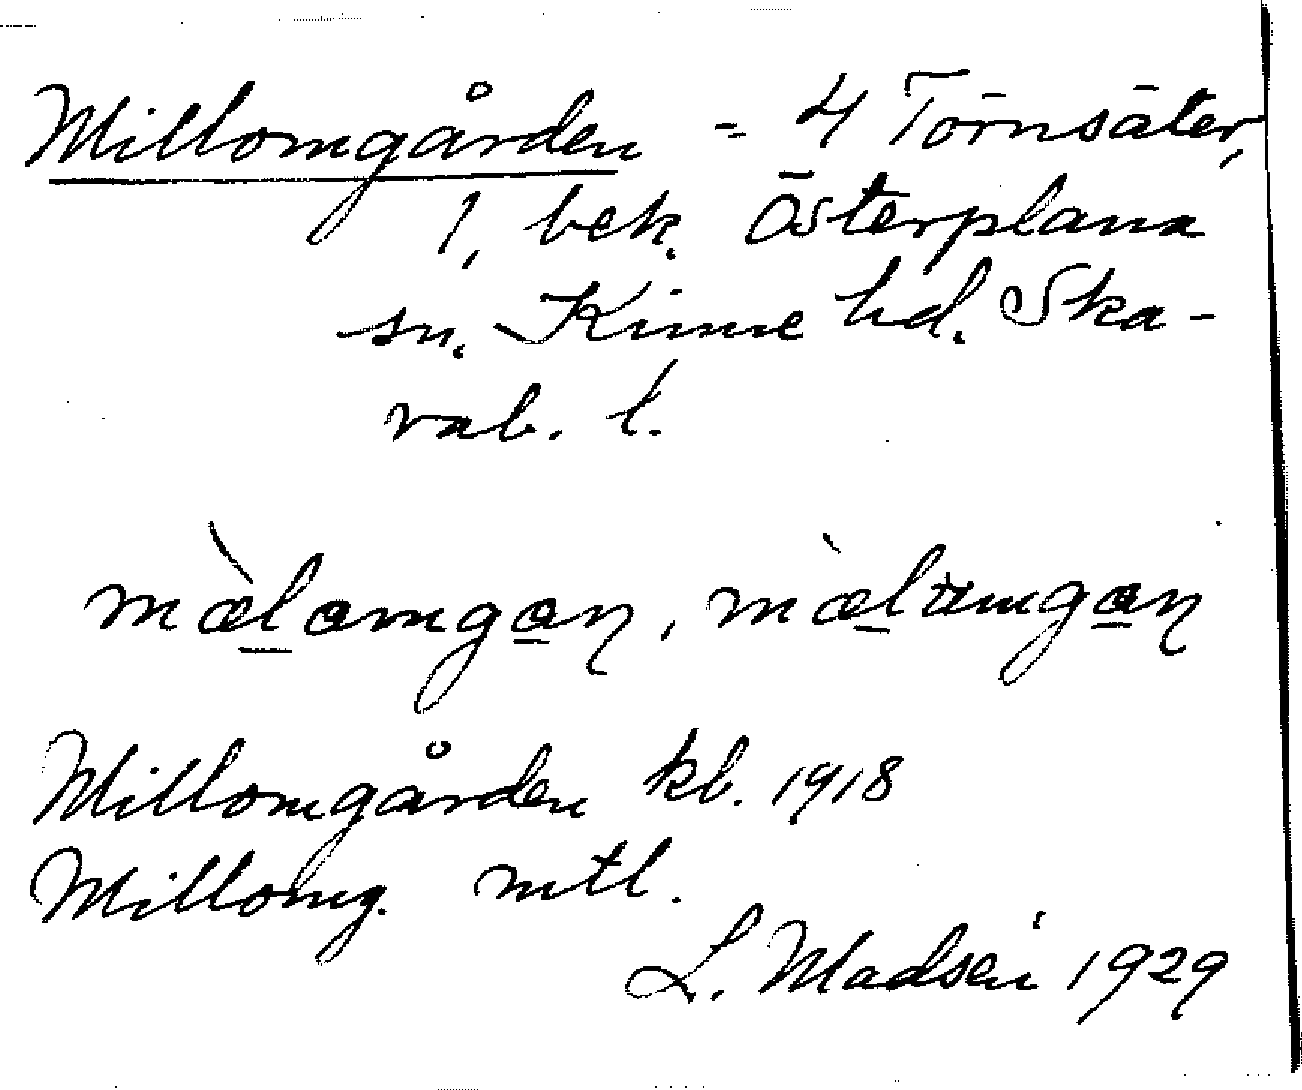 Millomgården = 4 Törnsäter,
1, bek. Österplana
sn. Kinne hd. Ska-
rab. l.
Millomgården kb. 1918
Millomg. mtl.
L. Madsén 1929